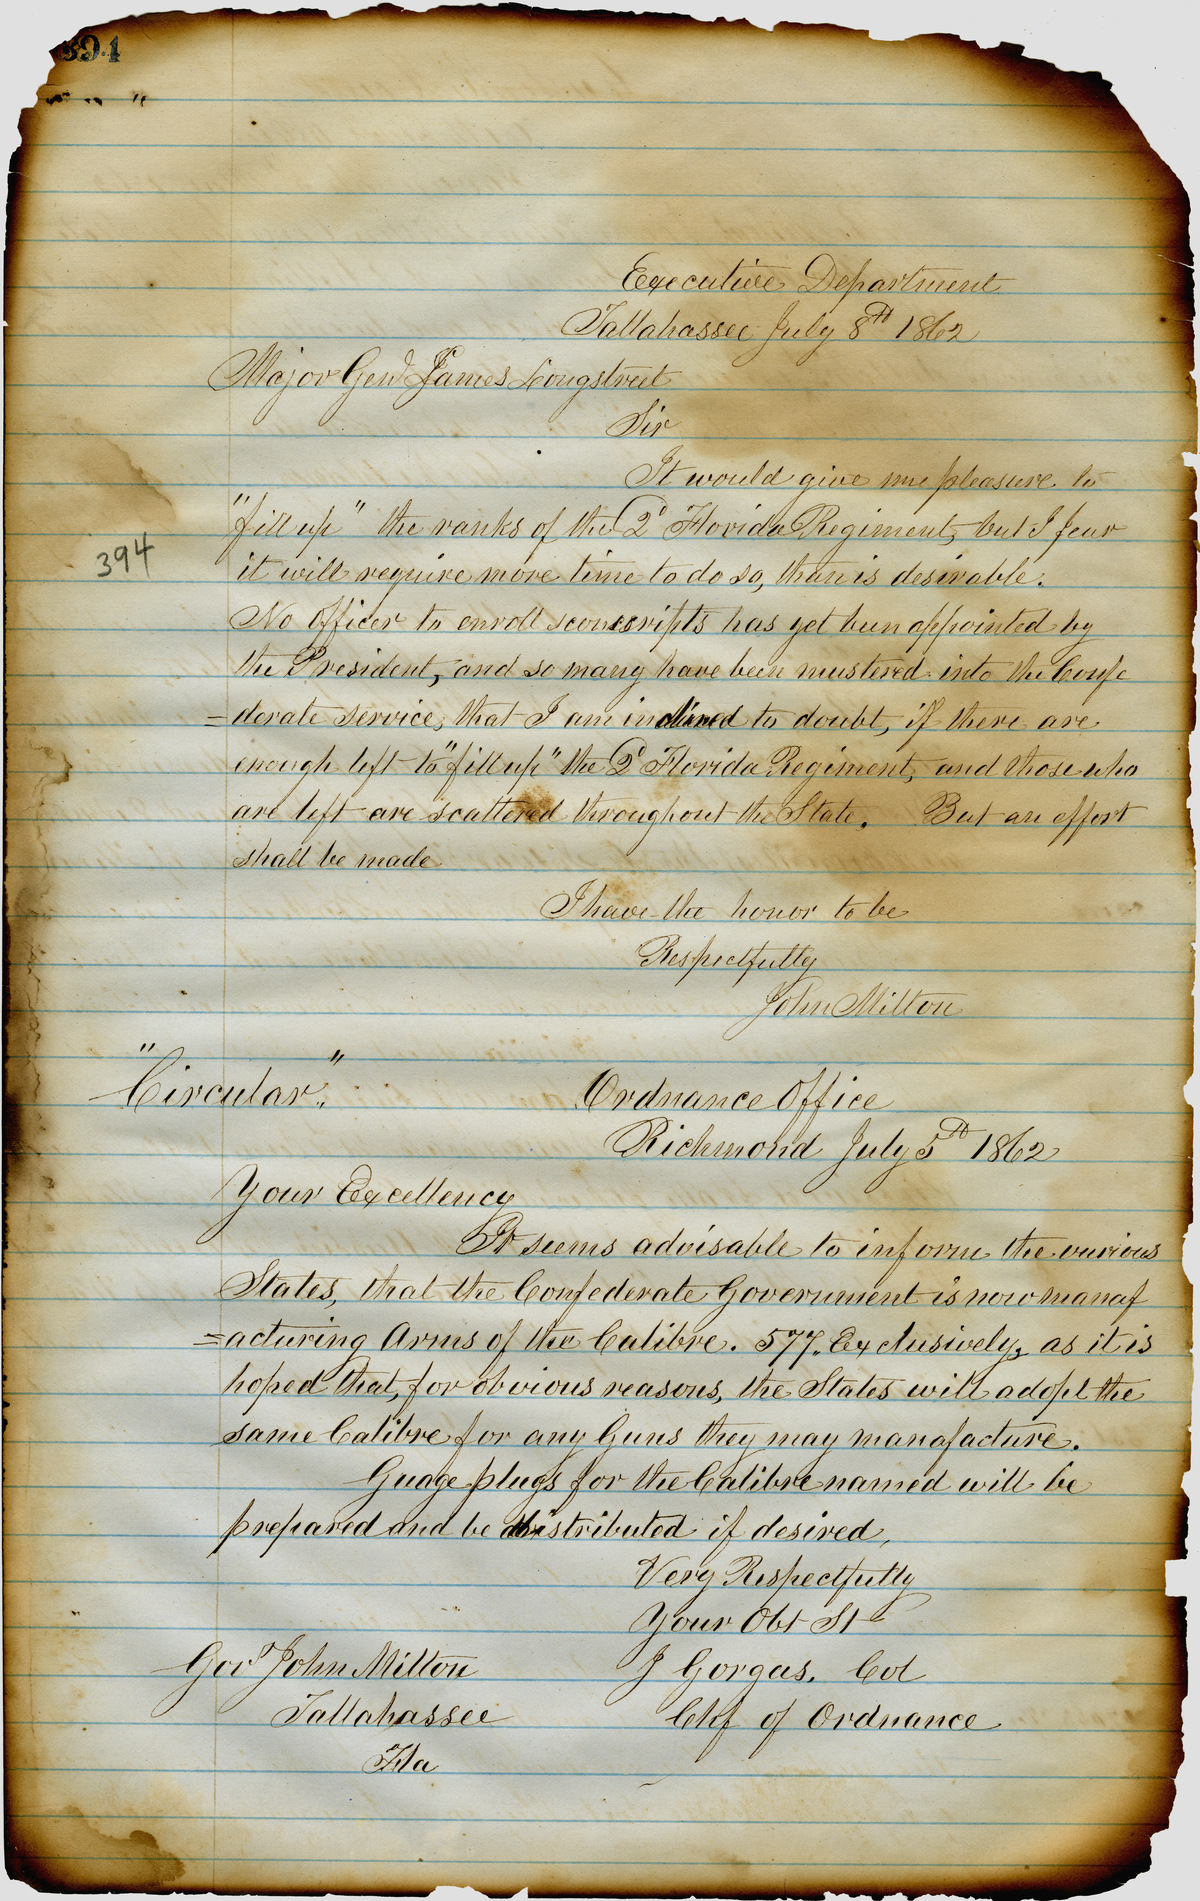 394
Executive Department
Tallahassee July 8th 1862
Major Genl James Longstreet
Sir
It would give me pleasure to
"fill up" the ranks of the 2d Florida Regiment, but I fear
394
it will require more time to do so, than is desirable.
No Officer to enroll conscripts has yet been appointed by
the President, and so many have been mustered into the Confe
=derate service, that I am inclined to doubt, if there are
enough left to "fill up" the 2d Florida Regiment, and those who
are left are scattered throughout the State. But an effort
shall be made
I have the honor to be
Respectfully
John Milton
"Circular".
Ordnance Office
Richmond July 5th 1862
Your Excellency
It seems advisable to inform the various
States, that the Confederate Government is now manaf
=acturing Arms of the Calibre. 577. Exclusively, as it is
hoped that, for obvious reasons, the States will adopt the
same Calibre for any Guns they may manafacture.
Guage plugs for the Calibre named will be
prepared and be distributed if desired,
Very Respectfully
Your Obt St
Govr John Milton J Gorgas. Col
Tallahassee Chf of Ordnance
Fla